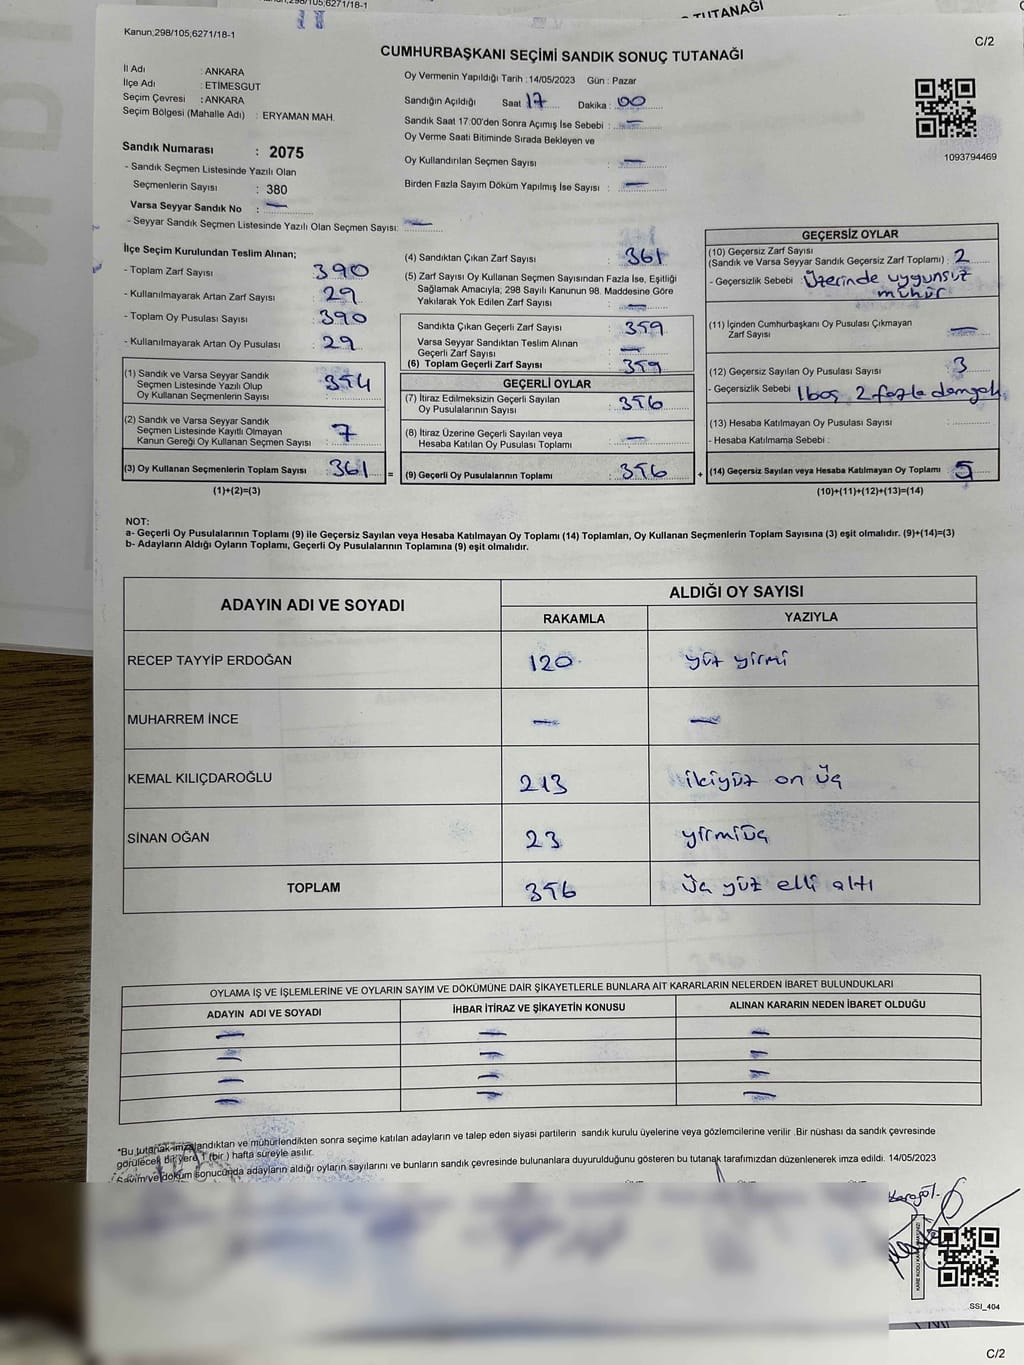 298/105,6271/18-1
TUTANAĞI
Kanun;298/105,6271/18-1
C/2
CUMHURBAŞKANI SEÇİMİ SANDIK SONUÇ TUTANAĞI
İl Adı : ANKARA
İlçe Adı : ETİMESGUT
Seçim Çevresi : ANKARA
Seçim Bölgesi (Mahalle Adı) : ERYAMAN MAH.
Oy Vermenin Yapıldığı Tarih :14/05/2023 Gün : Pazar
Sandığın Açıldığı Saat 17 Dakika : 00
Sandık Saat 17:00'den Sonra Açımış İse Sebebi : —
Oy Verme Saati Bitiminde Sırada Bekleyen ve
Oy Kullandırılan Seçmen Sayısı : —
Birden Fazla Sayım Döküm Yapılmış İse Sayısı : —
1093794469
Sandık Numarası : 2075
- Sandık Seçmen Listesinde Yazılı Olan
Seçmenlerin Sayısı : 380
Varsa Seyyar Sandık No : —
- Seyyar Sandık Seçmen Listesinde Yazılı Olan Seçmen Sayısı: —
İlçe Seçim Kurulundan Teslim Alınan;
- Toplam Zarf Sayısı : 390
- Kullanılmayarak Artan Zarf Sayısı : 29
- Toplam Oy Pusulası Sayısı : 390
- Kullanılmayarak Artan Oy Pusulası : 29
(1) Sandık ve Varsa Seyyar Sandık
Seçmen Listesinde Yazılı Olup
Oy Kullanan Seçmenlerin Sayısı : 354
(2) Sandık ve Varsa Seyyar Sandık
Seçmen Listesinde Kayıtlı Olmayan
Kanun Gereği Oy Kullanan Seçmen Sayısı : 7
(3) Oy Kullanan Seçmenlerin Toplam Sayısı : 361
(1)+(2)=(3)
(4) Sandıktan Çıkan Zarf Sayısı : 361
(5) Zarf Sayısı Oy Kullanan Seçmen Sayısından Fazla İse, Eşitliği
Sağlamak Amacıyla; 298 Sayılı Kanunun 98. Maddesine Göre
Yakılarak Yok Edilen Zarf Sayısı : —
Sandıkta Çıkan Geçerli Zarf Sayısı : 359
Varsa Seyyar Sandıktan Teslim Alınan
Geçerli Zarf Sayısı : —
(6) Toplam Geçerli Zarf Sayısı : 359
GEÇERLİ OYLAR
(7) İtiraz Edilmeksizin Geçerli Sayılan
Oy Pusulalarının Sayısı : 356
(8) İtiraz Üzerine Geçerli Sayılan veya
Hesaba Katılan Oy Pusulası Toplamı : —
= (9) Geçerli Oy Pusulalarının Toplamı : 356
GEÇERSİZ OYLAR
(10) Geçersiz Zarf Sayısı
(Sandık ve Varsa Seyyar Sandık Geçersiz Zarf Toplamı) : 2
- Geçersizlik Sebebi Üzerinde uygunsuz
mühür
(11) İçinden Cumhurbaşkanı Oy Pusulası Çıkmayan
Zarf Sayısı : —
(12) Geçersiz Sayılan Oy Pusulası Sayısı : 3
- Geçersizlik Sebebi 1 boş, 2 fazla damgalı
(13) Hesaba Katılmayan Oy Pusulası Sayısı :
- Hesaba Katılmama Sebebi :
+ (14) Geçersiz Sayılan veya Hesaba Katılmayan Oy Toplamı : 5
(10)+(11)+(12)+(13)=(14)
NOT:
a- Geçerli Oy Pusulalarının Toplamı (9) ile Geçersiz Sayılan veya Hesaba Katılmayan Oy Toplamı (14) Toplamları, Oy Kullanan Seçmenlerin Toplam Sayısına (3) eşit olmalıdır. (9)+(14)=(3)
b- Adayların Aldığı Oyların Toplamı, Geçerli Oy Pusulalarının Toplamına (9) eşit olmalıdır.
ADAYIN ADI VE SOYADI ALDIĞI OY SAYISI
RAKAMLA YAZIYLA
RECEP TAYYİP ERDOĞAN 120 yüz yirmi
MUHARREM İNCE — —
KEMAL KILIÇDAROĞLU 213 ikiyüz on üç
SİNAN OĞAN 23 yirmiüç
TOPLAM 356 üç yüz elli altı
OYLAMA İŞ VE İŞLEMLERİNE VE OYLARIN SAYIM VE DÖKÜMÜNE DAİR ŞİKAYETLERLE BUNLARA AİT KARARLARIN NELERDEN İBARET BULUNDUKLARI
ADAYIN ADI VE SOYADI İHBAR İTİRAZ VE ŞİKAYETİN KONUSU ALINAN KARARIN NEDEN İBARET OLDUĞU
— — —
— — —
— — —
— — —
*Bu tutanak imzalandıktan ve mühürlendikten sonra seçime katılan adayların ve talep eden siyasi partilerin sandık kurulu üyelerine veya gözlemcilerine verilir .Bir nüshası da sandık çevresinde
görülecek bir yere 1 (bir ) hafta süreyle asılır.
Sayım ve döküm sonucunda adayların aldığı oyların sayılarını ve bunların sandık çevresinde bulunanlara duyurulduğunu gösteren bu tutanak tarafımızdan düzenlenerek imza edildi. 14/05/2023
SSI_404
C/2